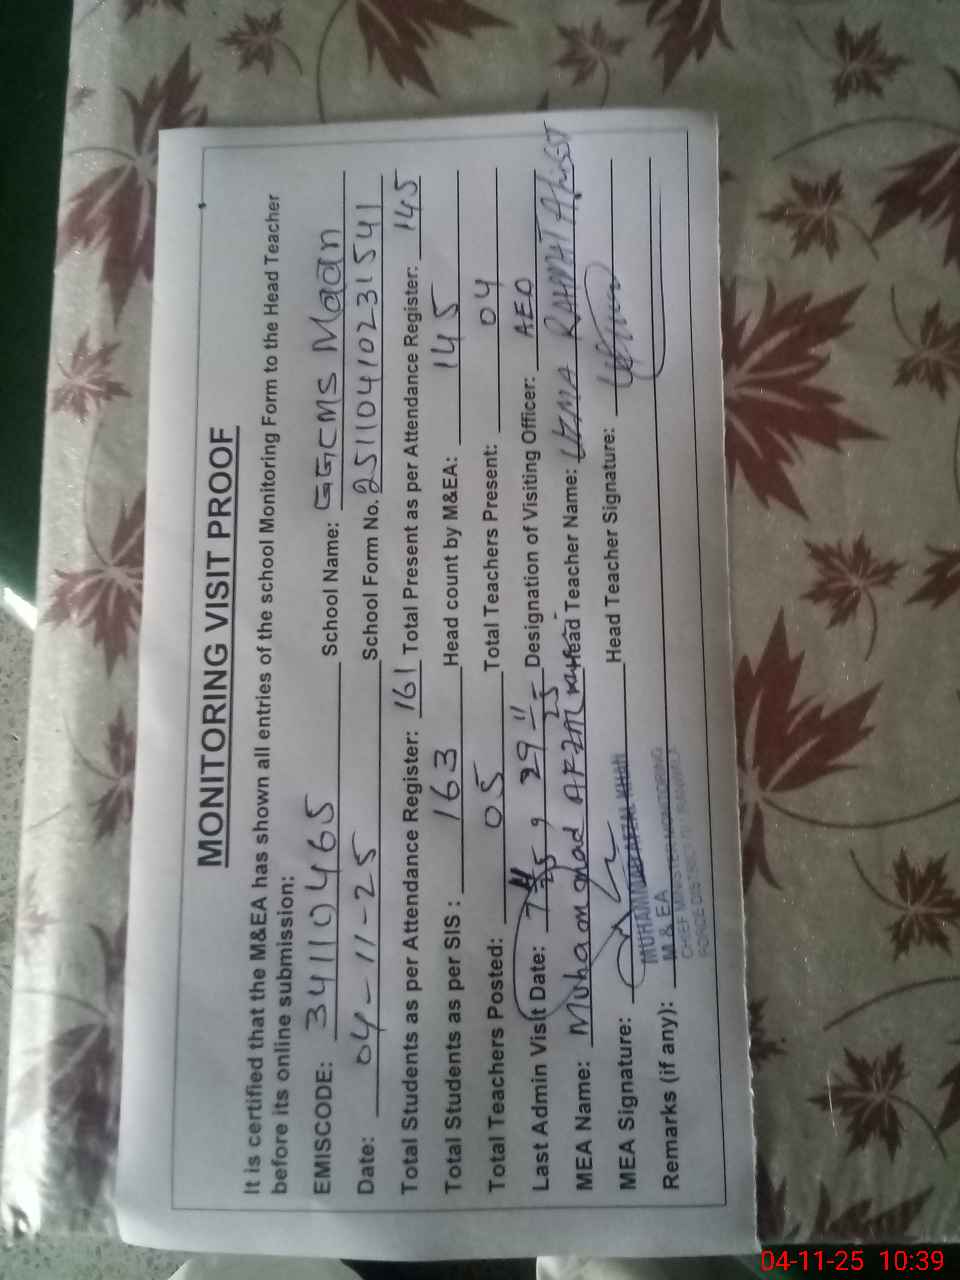 MONITORING VISIT PROOF
It is certified that the M&EA has shown all entries of the school Monitoring Form to the Head Teacher
before its online submission:
EMISCODE: 34110465 School Name: GGCMS Maan
Date: 04-11-25 School Form No. 25110410231541
Total Students as per Attendance Register: 161 Total Present as per Attendance Register: 145
Total Students as per SIS: 163 Head count by M&EA: 145
Total Teachers Posted: 05 Total Teachers Present: 04
Last Admin Visit Date: 29 11 25 Designation of Visiting Officer: AEO
MEA Name: Muhammad Afzal Khan Head Teacher Name: UZMA RAHMAT
MEA Signature: Head Teacher Signature:
MUHAMMAD AFZAL KHAN
Remarks (if any): M & EA
CHIEF MINISTER MONITORING
FORCE DISTRICT
04-11-25 10:39